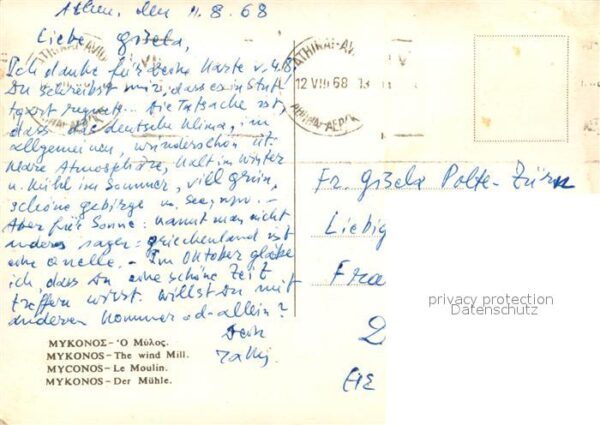 Athen, den 11.8.68
Liebe Gisela,
Ich danke für deine Karte v. 4.8,
Du schreibst mir, dass es in Stutt
gart regnet... Die Tatsache ist,
dass das deutsche Klima, im
allgemeinen, wunderschön ist.
Klare Atmosphäre, kalt im Winter
u. kühl im Sommer, viel grün,
schöne gebirge u. Seen, usw. -
Aber für Sonne: kannt man nicht
anders sagen: griechenland ist
eine Quelle. - Im Oktober glaube
ich, dass Du eine schöne Zeit
treffen wirst. Willst Du mit
anderen kommen od. allein?
Dein
ATHINAI-AV
12 VIII 68 13
Fr. Gisela Polte-Zürn
Liebig
Fra
privacy protection
Datenschutz
ΜΥΚΟΝΟΣ - Ὁ Μύλος.
MYKONOS - The wind Mill.
MYCONOS - Le Moulin.
MYKONOS - Der Mühle.